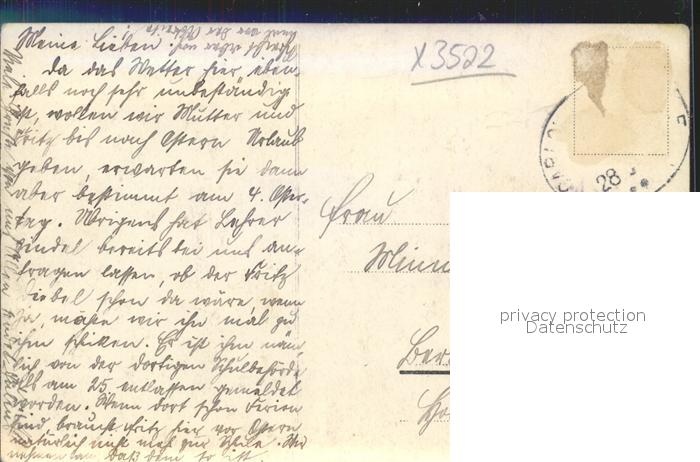 Meine Lieben!
Da das Wetter hier eben-
falls noch sehr unbeständig
ist, wollen wir Mutter und
Fritz bis nach Ostern Urlaub
geben, erwarten sie dann
aber bestimmt am 4. Oster-
tag. Übrigens hat Lehrer
Zindel bereits bei uns an-
fragen lassen, ob der Fritz
Diebel schon da wäre, wenn
ja, müßte wir ihn mal zu
ihm schicken. Er ist ihm näm-
lich von der dortigen Schulbehörde
als am 25. entlassen gemeldet
worden. Wenn dort schon Ferien
sind braucht Fritz hier vor Ostern
natürlich nicht mehr zur Schule. Wir
nehmen an, daß dem so ist.
X3522
28
Frau
Minn
Ber
privacy protection
Datenschutz